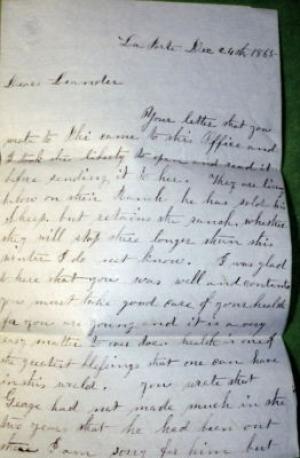 La Porte Dec 24th 1865
Dear Leander
Your letter that you
wrote to this came to this Office and
I took the liberty to open and read it
before sending it to her. They are living
below on their Ranch he has sold his
sheep but retains the ranch, whether
they will stop there longer than this
winter I do not know. I was glad
to here that you was well and contented
you must take good care of your health
for you are young and it is a very
easy matter to over doe. health is one of
the greatest blessings that one can have
in this world. You wrote that
George had not made much in the
two years that he had been out
there I am sorry for him but